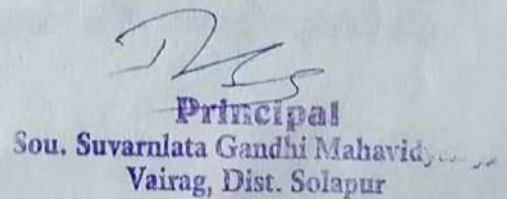 Principal
Sou. Suvarnlata Gandhi
Vairag, Dist. Solapur